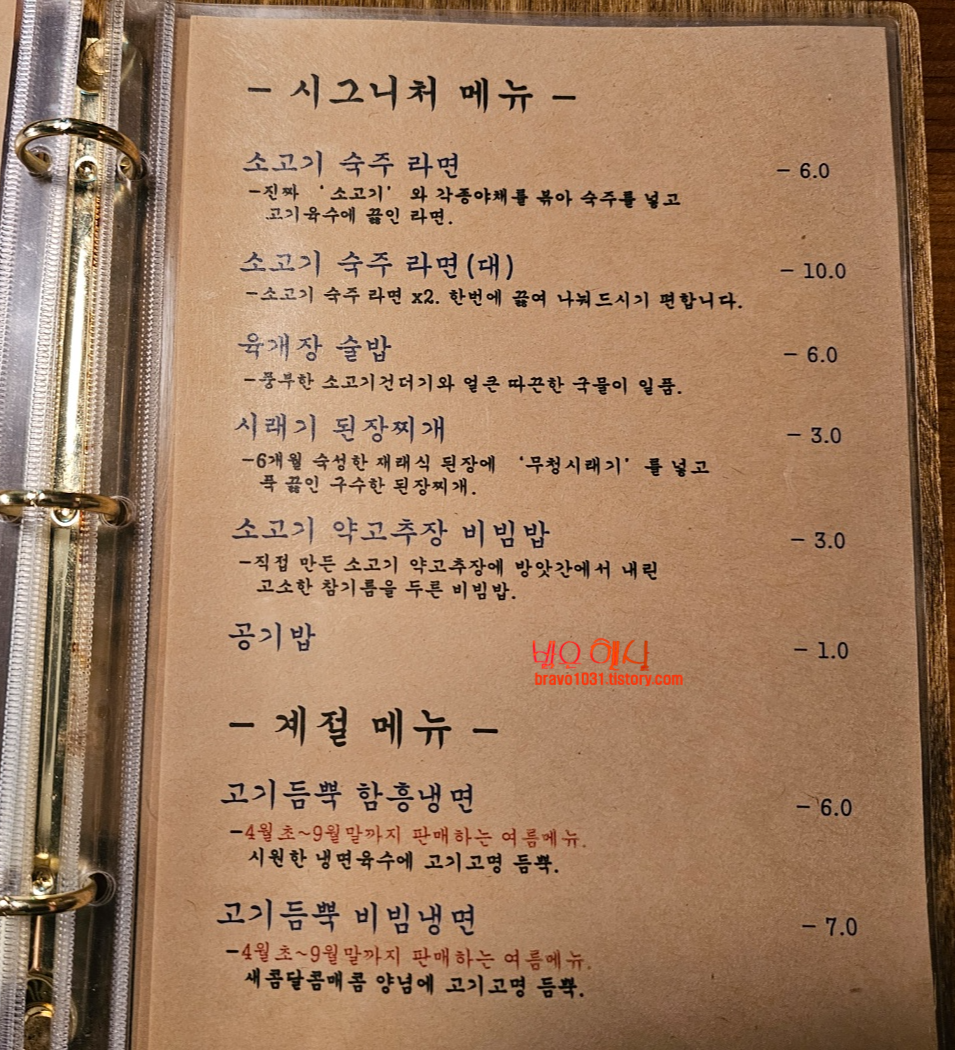 - 시그니처 메뉴 -
소고기 숙주 라면 - 6.0
-진짜 '소고기' 와 각종야채를 볶아 숙주를 넣고
고기육수에 끓인 라면.
소고기 숙주 라면(대) - 10.0
-소고기 숙주 라면 x2. 한번에 끓여 나눠드시기 편합니다.
육개장 술밥 - 6.0
-풍부한 소고기건더기와 얼큰 따끈한 국물이 일품.
시래기 된장찌개 - 3.0
-6개월 숙성한 재래식 된장에 '무청시래기' 를 넣고
푹 끓인 구수한 된장찌개.
소고기 약고추장 비빔밥 - 3.0
-직접 만든 소고기 약고추장에 방앗간에서 내린
고소한 참기름을 두른 비빔밥.
공기밥 - 1.0
bravo1031.tistory.com
- 계절 메뉴 -
고기듬뿍 함흥냉면 - 6.0
-4월초~9월말까지 판매하는 여름메뉴.
시원한 냉면육수에 고기고명 듬뿍.
고기듬뿍 비빔냉면 - 7.0
-4월초~9월말까지 판매하는 여름메뉴.
새콤달콤매콤 양념에 고기고명 듬뿍.